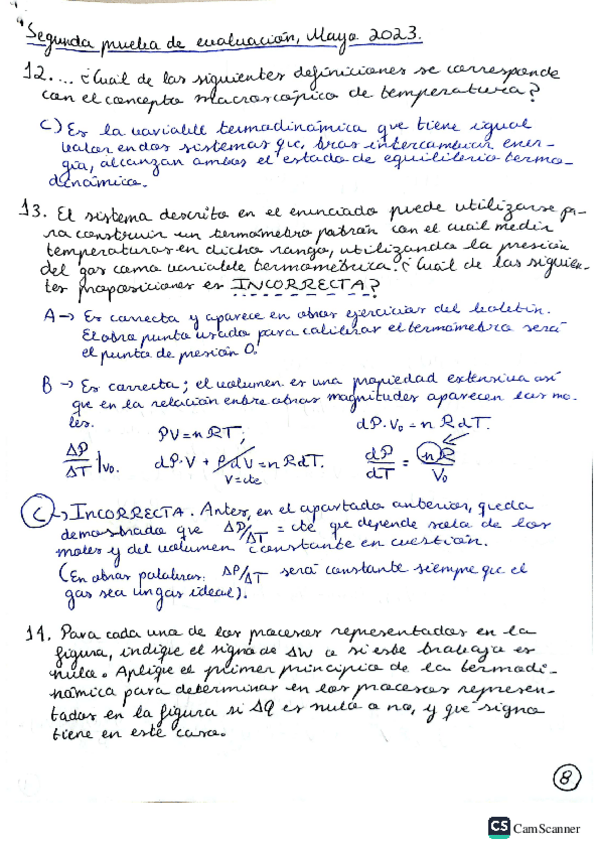 Segunda prueba de evaluación, Mayo 2023.
12.... ¿Cuál de las siguientes definiciones se corresponde
con el concepto macroscópico de temperatura?
C) Es la variable termodinámica que tiene igual
valor en dos sistemas que, tras intercambiar ener-
gía, alcanzan ambos el estado de equilibrio termo-
dinámico.
13. El sistema descrito en el enunciado puede utilizarse pa-
ra construir un termómetro patrón con el cual medir
temperaturas en dicho rango, utilizando la presión
del gas como variable termométrica. ¿Cuál de las siguien-
tes proposiciones es INCORRECTA?
A → Es correcta y aparece en otros ejercicios del boletín.
El otro punto usado para calibrar el termómetro será
el punto de presión 0.
B → Es correcta; el volumen es una propiedad extensiva así
que en la relación entre otras magnitudes aparecen los mo-
les.
PV = nRT;
dP·V₀ = nRdT.
ΔP/ΔT |V₀.
dP·V + PdV = nRdT.
V=cte
dP/dT = nR/V₀
C → INCORRECTA. Antes, en el apartado anterior, queda
demostrado que ΔP/ΔT = cte que depende solo de los
moles y del volumen constante en cuestión.
(En otras palabras: ΔP/ΔT será constante siempre que el
gas sea un gas ideal).
14. Para cada uno de los procesos representados en la
figura, indique el signo de ΔW o si este trabajo es
nulo. Aplique el primer principio de la termodi-
námica para determinar en los procesos represen-
tados en la figura si ΔQ es nulo o no, y qué signo
tiene en este caso.
8
CS CamScanner